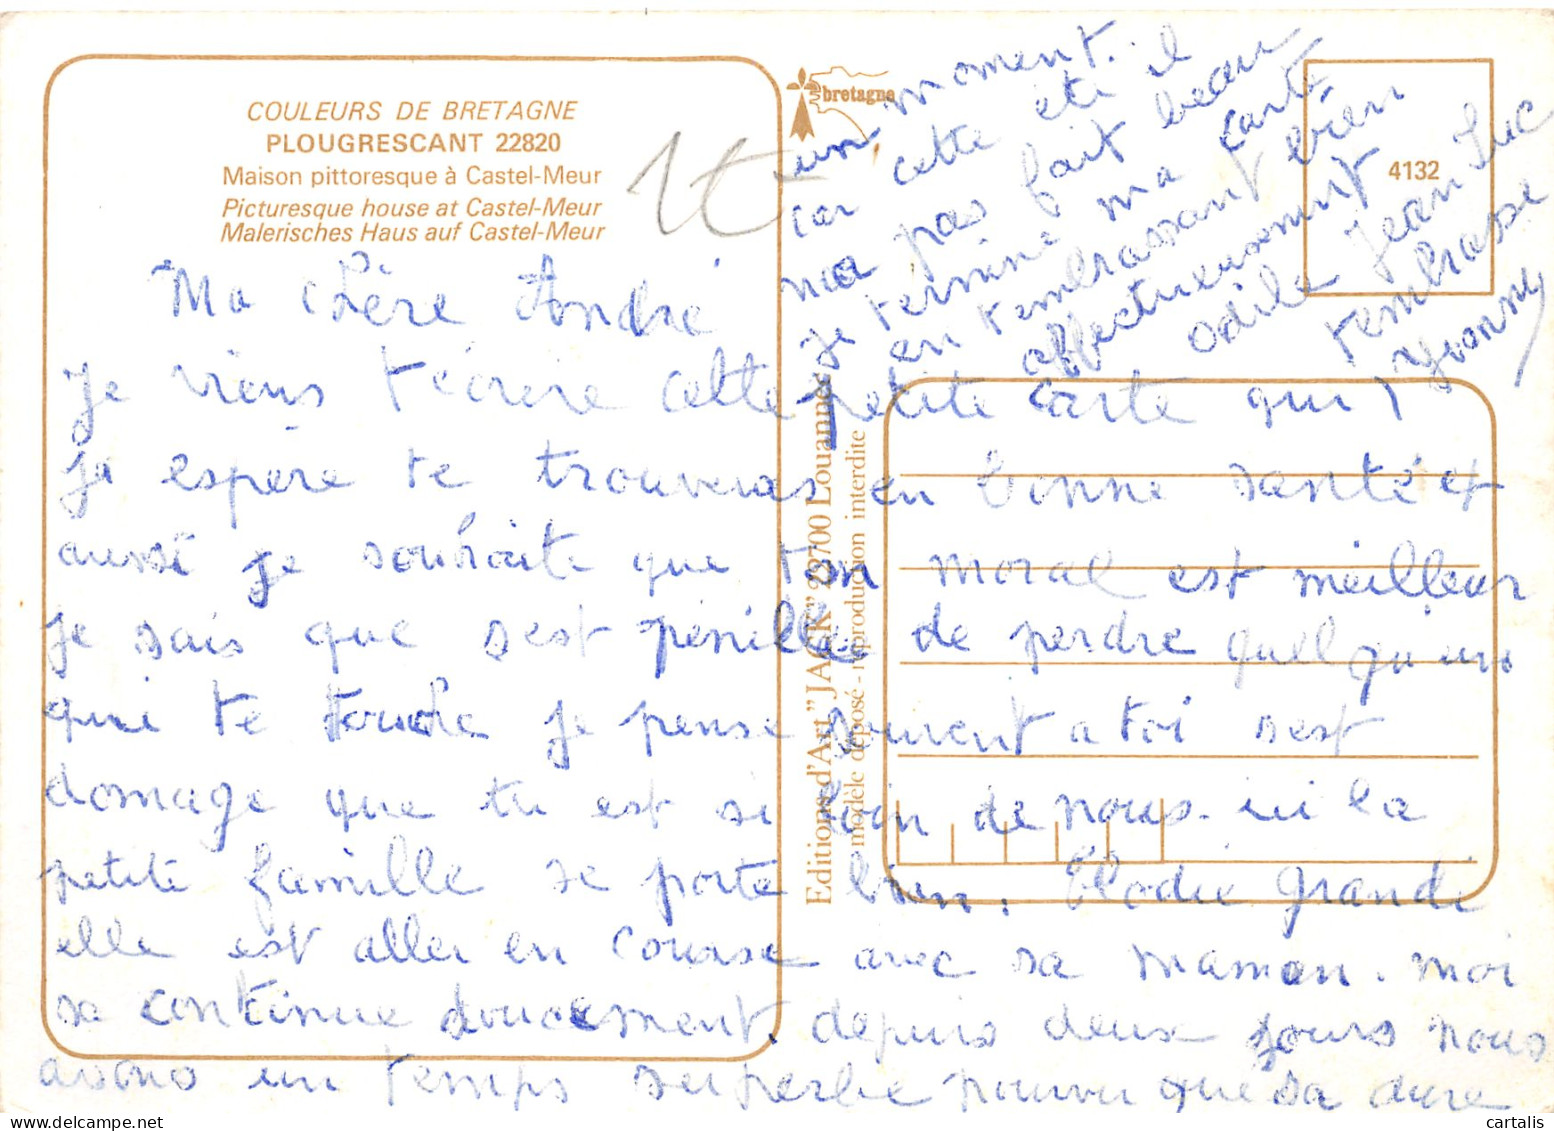 COULEURS DE BRETAGNE
PLOUGRESCANT 22820
Maison pittoresque à Castel-Meur
Picturesque house at Castel-Meur
Malerisches Haus auf Castel-Meur
bretagne
4132
Editions d'Art "JACK" 22700 Louannec
modèle déposé - reproduction interdite
Ma chère André
Je viens t'écrire cette petite carte qui
je espère te trouveras en bonne santé et
aussi je souhaite que ton moral est meilleur
je sais que sest penible de perdre quelqu'un
qui te touche je pense souvent a toi sest
domage que tu est si loin de nous. ici la
petite famille se porte bien. Elodie grandi
elle est aller en course avec sa maman. moi
sa continue doucement. depuis deux jours nous
avons un temps superbe pourvu que sa dure
un moment.
car cette été il
na pas fait beau
je termine ma carte
en t'embrassant bien
affectueusement
Odile Jean Luc
t'embrasse
Yvonne
1€
cartalis